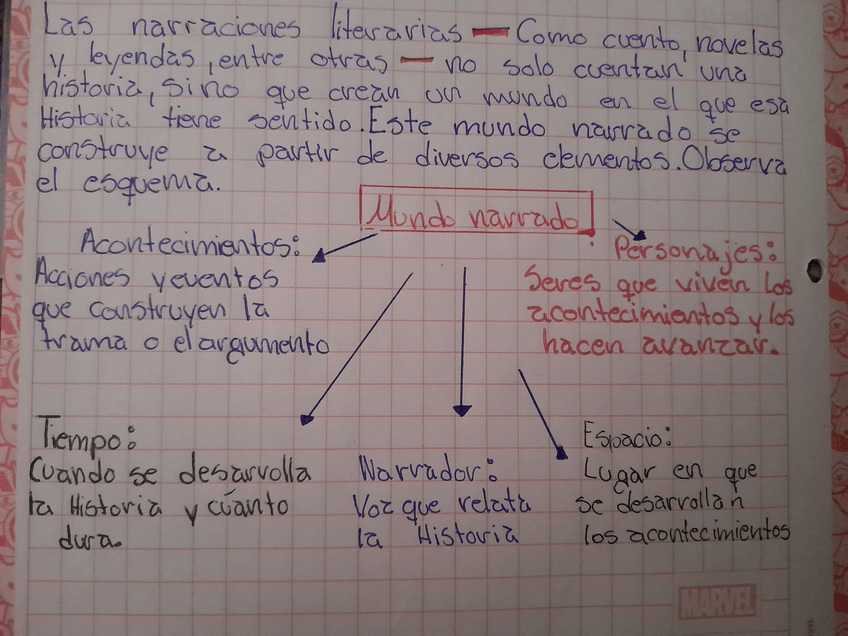 Las narraciones literarias — Como cuento, novelas
y leyendas, entre otras — no solo cuentan una
historia, sino que crean un mundo en el que esa
Historia tiene sentido. Este mundo narrado se
construye a partir de diversos elementos. Observa
el esquema.
Mundo narrado
Acontecimientos:
Acciones y eventos
que construyen la
trama o el argumento
Personajes:
Seres que viven los
acontecimientos y los
hacen avanzar.
Tiempo:
Cuando se desarrolla
la Historia y cúanto
dura.
Narrador:
Voz que relata
la Historia
Espacio:
Lugar en que
se desarrollan
los acontecimientos
MARVEL